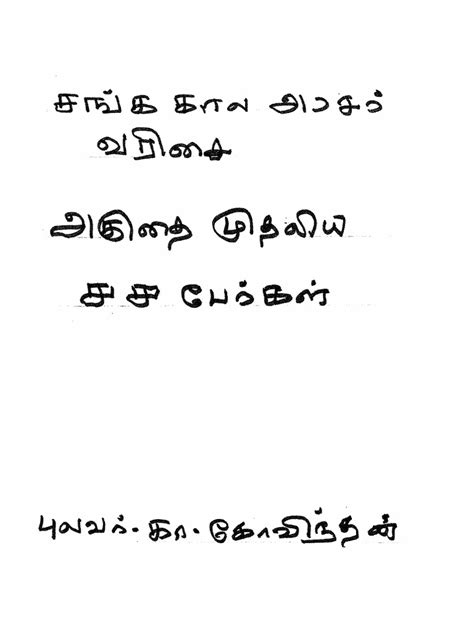 சங்க கால அரசர்
வரிசை
அகுதை முதலிய
௪௪ பேர்கள்
புலவர். கா. கோவிந்தன்